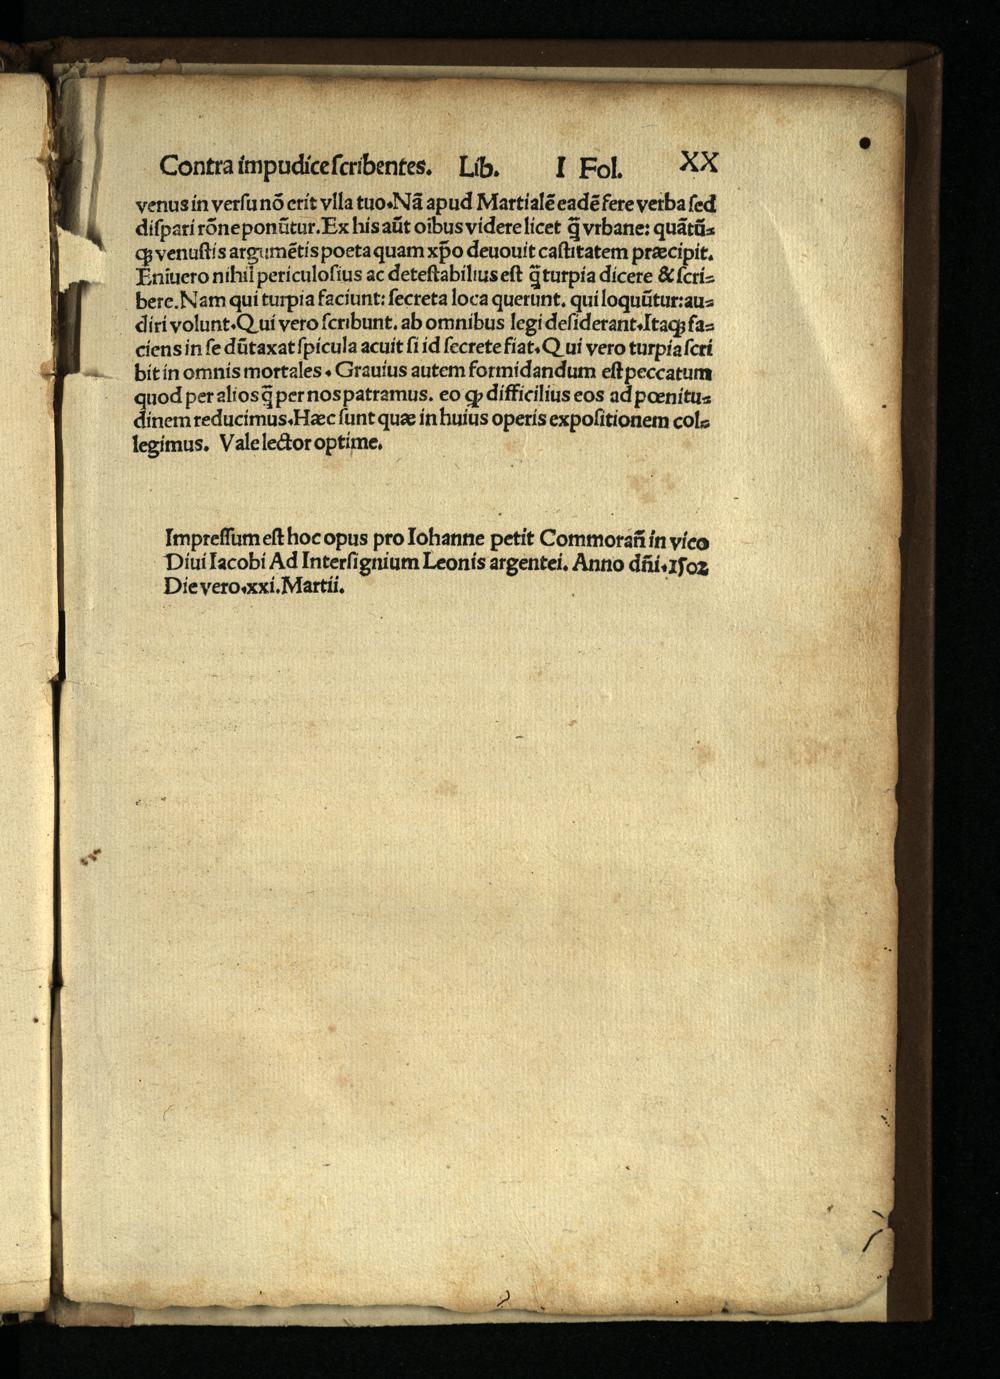 Contra impudice scribentes. Lib. I Fol. XX
venus in versu nõ erit vlla tuo. Nã apud Martialẽ eadẽ fere verba sed
dispari rõne ponũtur. Ex his aũt oĩbus videre licet q̃ vrbane: quãtũ⸗
qꝫ venustis argumẽtis poeta quam xp̃o deuouit castitatem præcipit.
Enĩuero nihil periculosius ac detestabilius est q̃ turpia dicere & scri⸗
bere. Nam qui turpia faciunt: secreta loca querunt. qui loquũtur: au⸗
diri volunt. Qui vero scribunt. ab omnibus legi desiderant. Itaqꝫ fa⸗
ciens in se dũtaxat spicula acuit si id secrete fiat. Qui vero turpia scri
bit in omnis mortales. Grauius autem formidandum est peccatum
quod per alios q̃ per nos patramus. eo ꝙ difficilius eos ad pœnitu⸗
dinem reducimus. Hæc sunt quæ in huius operis expositionem col⸗
legimus. Vale lector optime.
Impressum est hoc opus pro Iohanne petit Commorañ in vico
Diui Iacobi Ad Intersignium Leonis argentei. Anno dñi. 1502
Die vero. xxi. Martii.